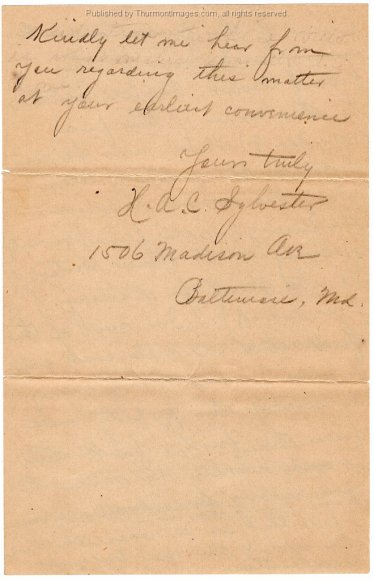 Published by Thurmontimages.com, all rights reserved
Kindly let me hear from
you regarding this matter
at your earliest convenience
Yours truly
H. A. C. Sylvester
1506 Madison Ave
Baltimore, Md.